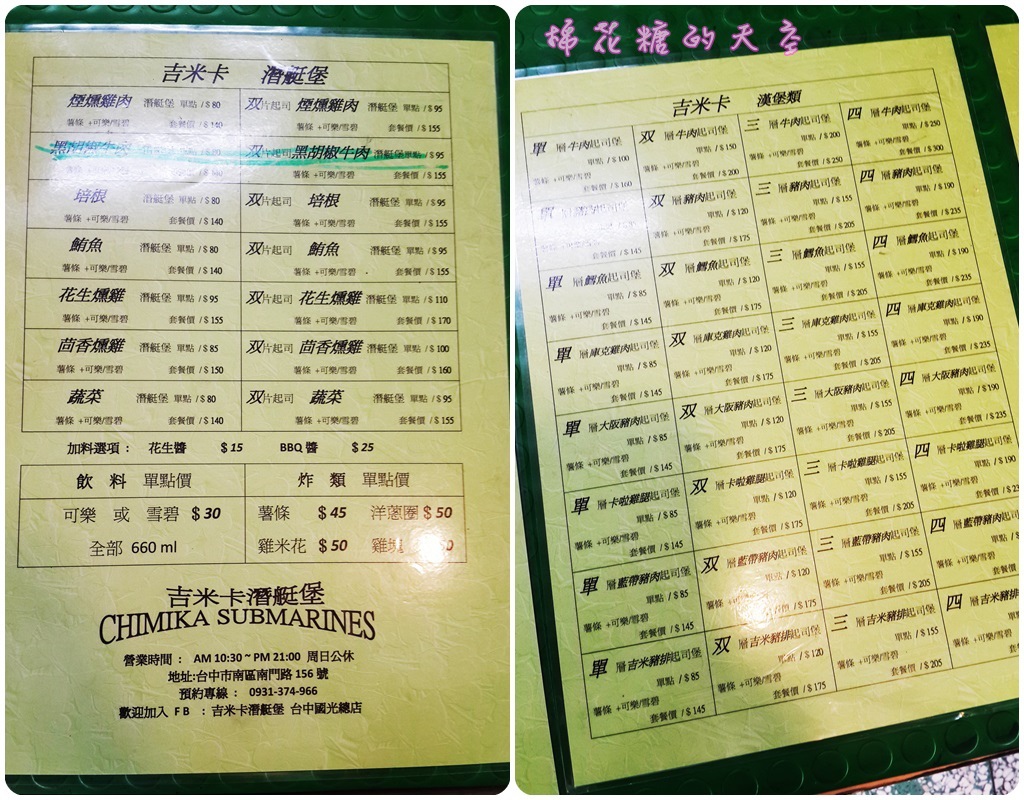 吉米卡 潛艇堡
煙燻雞肉 潛艇堡 單點 / $ 80
薯條 +可樂/雪碧 套餐價 / $ 140
双片起司 煙燻雞肉 潛艇堡 單點 / $ 95
薯條 +可樂/雪碧 套餐價 / $ 155
黑胡椒牛肉
双片起司 黑胡椒牛肉 潛艇堡 單點 / $ 95
薯條 +可樂/雪碧 套餐價 / $ 155
培根 潛艇堡 單點 / $ 80
薯條 +可樂/雪碧 套餐價 / $ 140
双片起司 培根 潛艇堡 單點 / $ 95
薯條 +可樂/雪碧 套餐價 / $ 155
鮪魚 潛艇堡 單點 / $ 80
薯條 +可樂/雪碧 套餐價 / $ 140
双片起司 鮪魚 潛艇堡 單點 / $ 95
薯條 +可樂/雪碧 套餐價 / $ 155
花生燻雞 潛艇堡 單點 / $ 95
薯條 +可樂/雪碧 套餐價 / $ 155
双片起司 花生燻雞 潛艇堡 單點 / $ 110
薯條 +可樂/雪碧 套餐價 / $ 170
茴香燻雞 潛艇堡 單點 / $ 85
薯條 +可樂/雪碧 套餐價 / $ 150
双片起司 茴香燻雞 潛艇堡 單點 / $ 100
薯條 +可樂/雪碧 套餐價 / $ 160
蔬菜 潛艇堡 單點 / $ 80
薯條 +可樂/雪碧 套餐價 / $ 140
双片起司 蔬菜 潛艇堡 單點 / $ 95
薯條 +可樂/雪碧 套餐價 / $ 155
加料選項： 花生醬 $ 15 BBQ 醬 $ 25
飲 料 單點價
可樂 或 雪碧 $ 30
全部 660 ml
炸 類 單點價
薯條 $ 45 洋蔥圈 $ 50
雞米花 $ 50 雞塊
吉米卡潛艇堡
CHIMIKA SUBMARINES
營業時間： AM 10:30 ~ PM 21:00 周日公休
地址:台中市南區南門路 156 號
預約專線： 0931-374-966
歡迎加入 F B ：吉米卡潛艇堡 台中國光總店
棉花糖的天空
吉米卡 漢堡類
單層牛肉起司堡
單點 / $ 100
薯條 +可樂/雪碧
套餐價 / $ 160
双層牛肉起司堡
單點 / $ 150
薯條 +可樂/雪碧
套餐價 / $ 200
三層牛肉起司堡
單點 / $ 200
薯條 +可樂/雪碧
套餐價 / $ 250
四層牛肉起司堡
單點 / $ 250
薯條 +可樂/雪碧
套餐價 / $ 300
單
套餐價 / $ 145
双層豬肉起司堡
單點 / $ 120
薯條 +可樂/雪碧
套餐價 / $ 175
三層豬肉起司堡
單點 / $ 155
薯條 +可樂/雪碧
套餐價 / $ 205
四層豬肉起司堡
單點 / $ 190
薯條 +可樂/雪碧
套餐價 / $ 235
單層鱈魚起司堡
單點 / $ 85
薯條 +可樂/雪碧
套餐價 / $ 145
双層鱈魚起司堡
單點 / $ 120
薯條 +可樂/雪碧
套餐價 / $ 175
三層鱈魚起司堡
單點 / $ 155
薯條 +可樂/雪碧
套餐價 / $ 205
四層鱈魚起司堡
單點 / $ 190
薯條 +可樂/雪碧
套餐價 / $ 235
單層庫克雞肉起司堡
單點 / $ 85
薯條 +可樂/雪碧
套餐價 / $ 145
双層庫克雞肉起司堡
單點 / $ 120
薯條 +可樂/雪碧
套餐價 / $ 175
三層庫克雞肉起司堡
單點 / $ 155
薯條 +可樂/雪碧
套餐價 / $ 205
四層庫克雞肉起司堡
單點 / $ 190
薯條 +可樂/雪碧
套餐價 / $ 235
單層大阪豬肉起司堡
單點 / $ 85
薯條 +可樂/雪碧
套餐價 / $ 145
双層大阪豬肉起司堡
單點 / $ 120
薯條 +可樂/雪碧
套餐價 / $ 175
三層大阪豬肉起司堡
單點 / $ 155
薯條 +可樂/雪碧
套餐價 / $ 205
四層大阪豬肉起司堡
單點 / $ 190
薯條 +可樂/雪碧
套餐價 / $ 235
單層卡啦雞腿起司堡
單點 / $ 85
薯條 +可樂/雪碧
套餐價 / $ 145
双層卡啦雞腿起司堡
單點 / $ 120
薯條 +可樂/雪碧
套餐價 / $ 175
三層卡啦雞腿起司堡
單點 / $ 155
薯條 +可樂/雪碧
套餐價 / $ 205
四層卡啦雞腿起司堡
單點 / $ 190
薯條 +可樂/雪碧
套餐價
單層藍帶豬肉起司堡
單點 / $ 85
薯條 +可樂/雪碧
套餐價 / $ 145
双層藍帶豬肉起司堡
單點 / $ 120
薯條
套餐價 / $ 175
三層藍帶豬肉起司堡
單點 / $ 155
薯條 +可樂/雪碧
套餐價 / $ 205
四層藍帶豬肉起
單點
薯條 +可樂/雪碧
套餐價
單層吉米豬排起司堡
單點 / $ 85
薯條 +可樂/雪碧
套餐價 / $ 145
双層吉米豬排起司堡
單點 / $ 120
薯條 +可樂/雪碧
套餐價 / $ 175
三層吉米豬排起司堡
單點 / $ 155
薯條 +可樂/雪碧
套餐價 / $ 205
四層吉米豬排
薯條 +可樂/雪碧